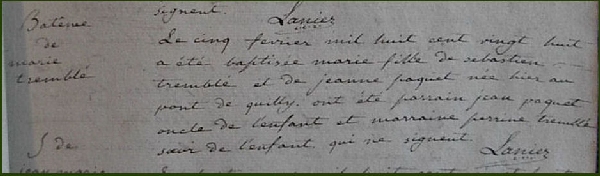 signent. Lanier
Batême
de
marie
tremblé
Le cinq fevrier mil huit cent vingt huit
a été baptisée marie fille de sebastien
tremblé et de jeanne paquet née hier au
pont de quilly. ont été parrain jean paquet
oncle de l'enfant et marraine perrine tremblé
sœur de l'enfant qui ne signent
Lanier
S de
jean marie